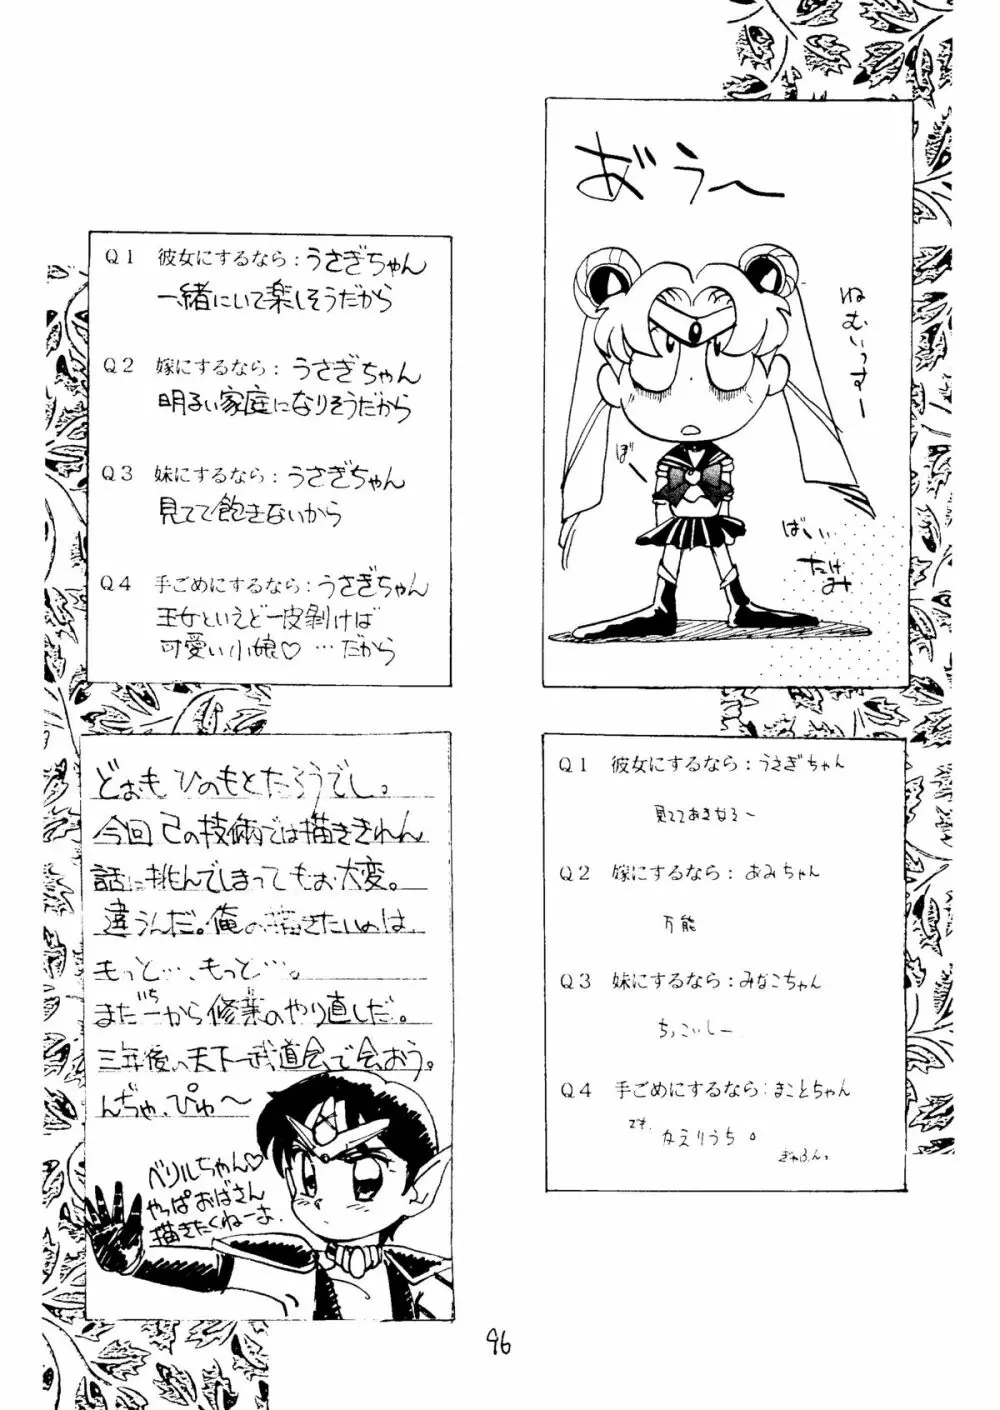 おうー
ねむいっすー
ぼー
ばい
たけみ
Q1 彼女にするなら：うさぎちゃん
一緒にいて楽しそうだから
Q2 嫁にするなら：うさぎちゃん
明るい家庭になりそうだから
Q3 妹にするなら：うさぎちゃん
見てて飽きないから
Q4 手ごめにするなら：うさぎちゃん
王女といえど一皮剥けば
可愛い小娘♡…だから
どぉもひのもとたろうでし。
今回己の技術では描ききれん
話に挑んでしまってもぉ大変。
違うんだ。俺の描きたいのは、
もっと…、もっと…。
また一から修業のやり直しだ。
いち
三年後の天下一武道会で会おう。
んぢゃ、ぴゅ〜
ベリルちゃん♡
やっぱおばさん
描きたくねーよ.
Q1 彼女にするなら：うさぎちゃん
見ててあきなそ〜
Q2 嫁にするなら：あみちゃん
万能
Q3 妹にするなら：みなこちゃん
ちっこいしー
Q4 手ごめにするなら：まことちゃん
です.
かえりうち。
ぎゃふんっ
96